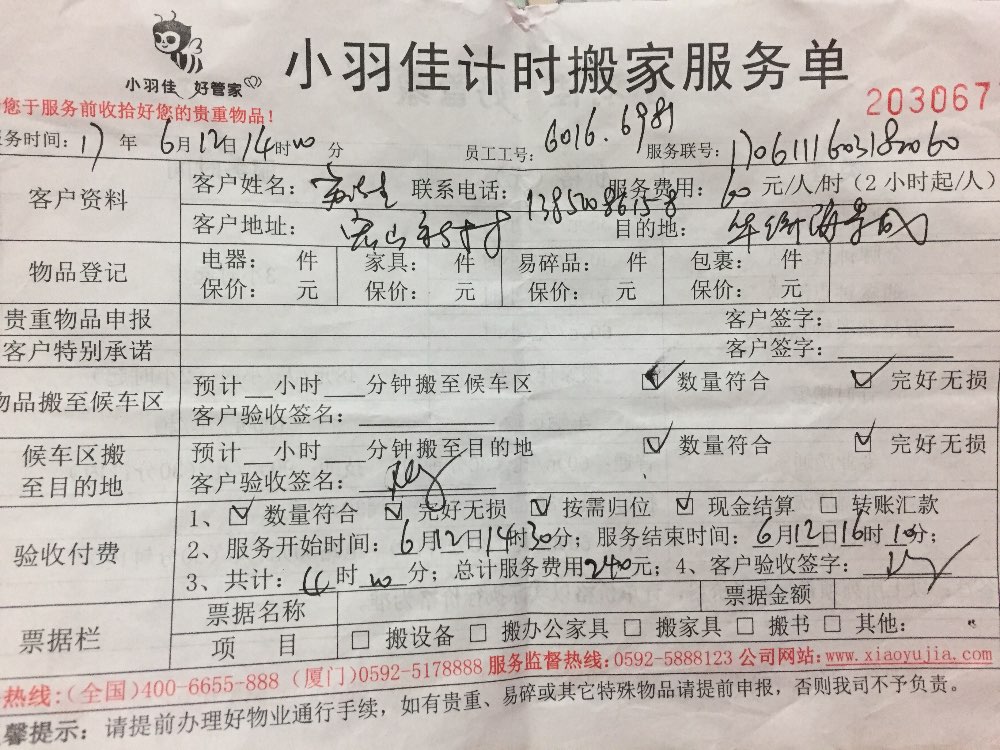 小羽佳 好管家
小羽佳计时搬家服务单
您于服务前收拾好您的贵重物品!
203067
务时间: 17 年 6月12日14时00分 员工工号: 6016.6981 服务联号: 1706111603182060
客户资料 客户姓名: 联系电话: 13850086158 服务费用: 60 元/人/时(2小时起/人)
客户地址: 目的地: 海景城
物品登记 电器: 件 家具: 件 易碎品: 件 包裹: 件
保价: 元 保价: 元 保价: 元 保价: 元
贵重物品申报 客户签字:
客户特别承诺 客户签字:
物品搬至候车区 预计__小时___分钟搬至候车区 ☑数量符合 ☑完好无损
客户验收签名:
候车区搬至目的地 预计__小时___分钟搬至目的地 ☑数量符合 ☑完好无损
客户验收签名:
验收付费 1、☑数量符合 ☑完好无损 ☑按需归位 ☑现金结算 □转账汇款
2、服务开始时间: 6月12日14时30分; 服务结束时间: 6月12日16时10分;
3、共计: 时 分; 总计服务费用240元; 4、客户验收签字:
票据栏 票据名称 票据金额
项 目 □搬设备 □搬办公家具 □搬家具 □搬书 □其他:
热线:(全国)400-6655-888 (厦门)0592-5178888 服务监督热线:0592-5888123 公司网站:www.xiaoyujia.com
馨提示: 请提前办理好物业通行手续,如有贵重、易碎或其它特殊物品请提前申报,否则我司不予负责。